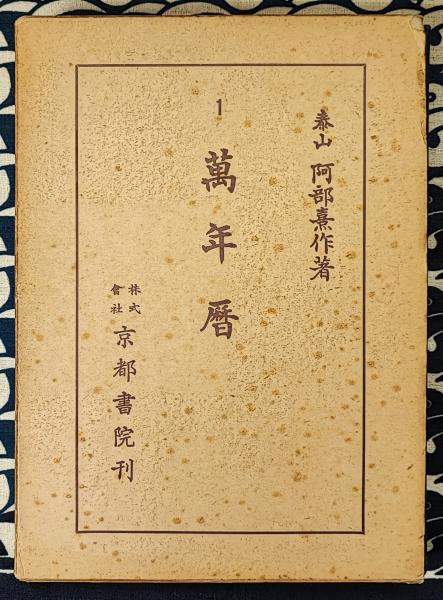 泰山 阿部熹作著
1 萬年暦
株式會社 京都書院刊